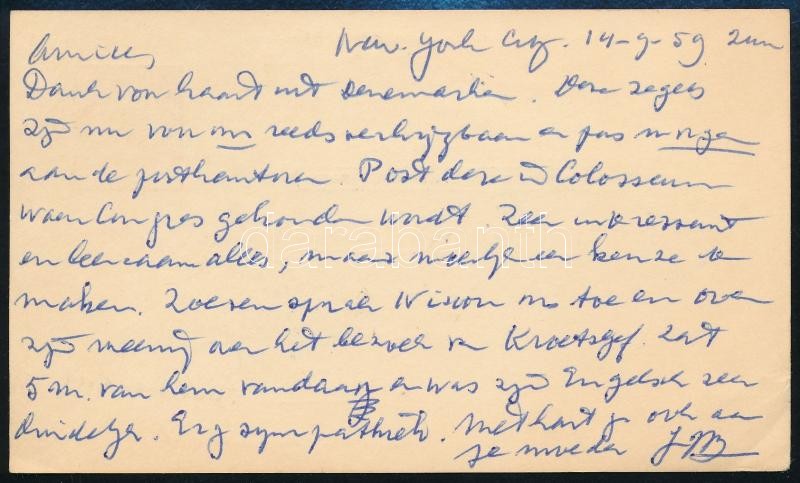 New-York City. 14-9-59
Amice,
Dank van haart uit Denemarken. Deze zegels
zijn nu van ons reeds verkrijgbaar en pas morgen
aan de postkantoren. Post deze in Colosseum
waar Congres gehouden wordt. Zeer interessant
en leerzaam alles, maar moeilijk een keuze te
maken. Zoeven sprak Nixon ons toe en over
zijn mening over het bezoek v. Zat
5 m. van hem vandaan en was zijn Engelsch zeer
duidelijk. Erg sympathiek. Met hart gr ook aan
je moeder
darabanth